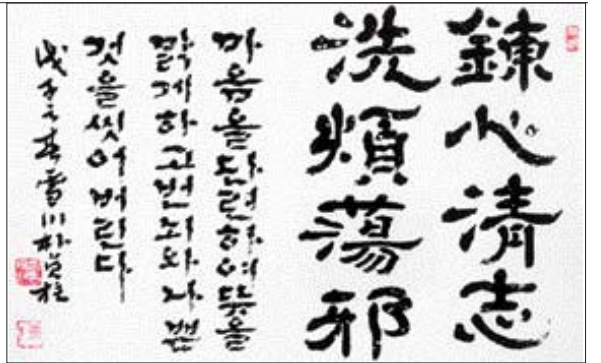 鍊心清志
洗煩蕩邪
마음을단련하여뜻을
맑게하고번뇌와
것을씻어버린다
戊子春雪川朴